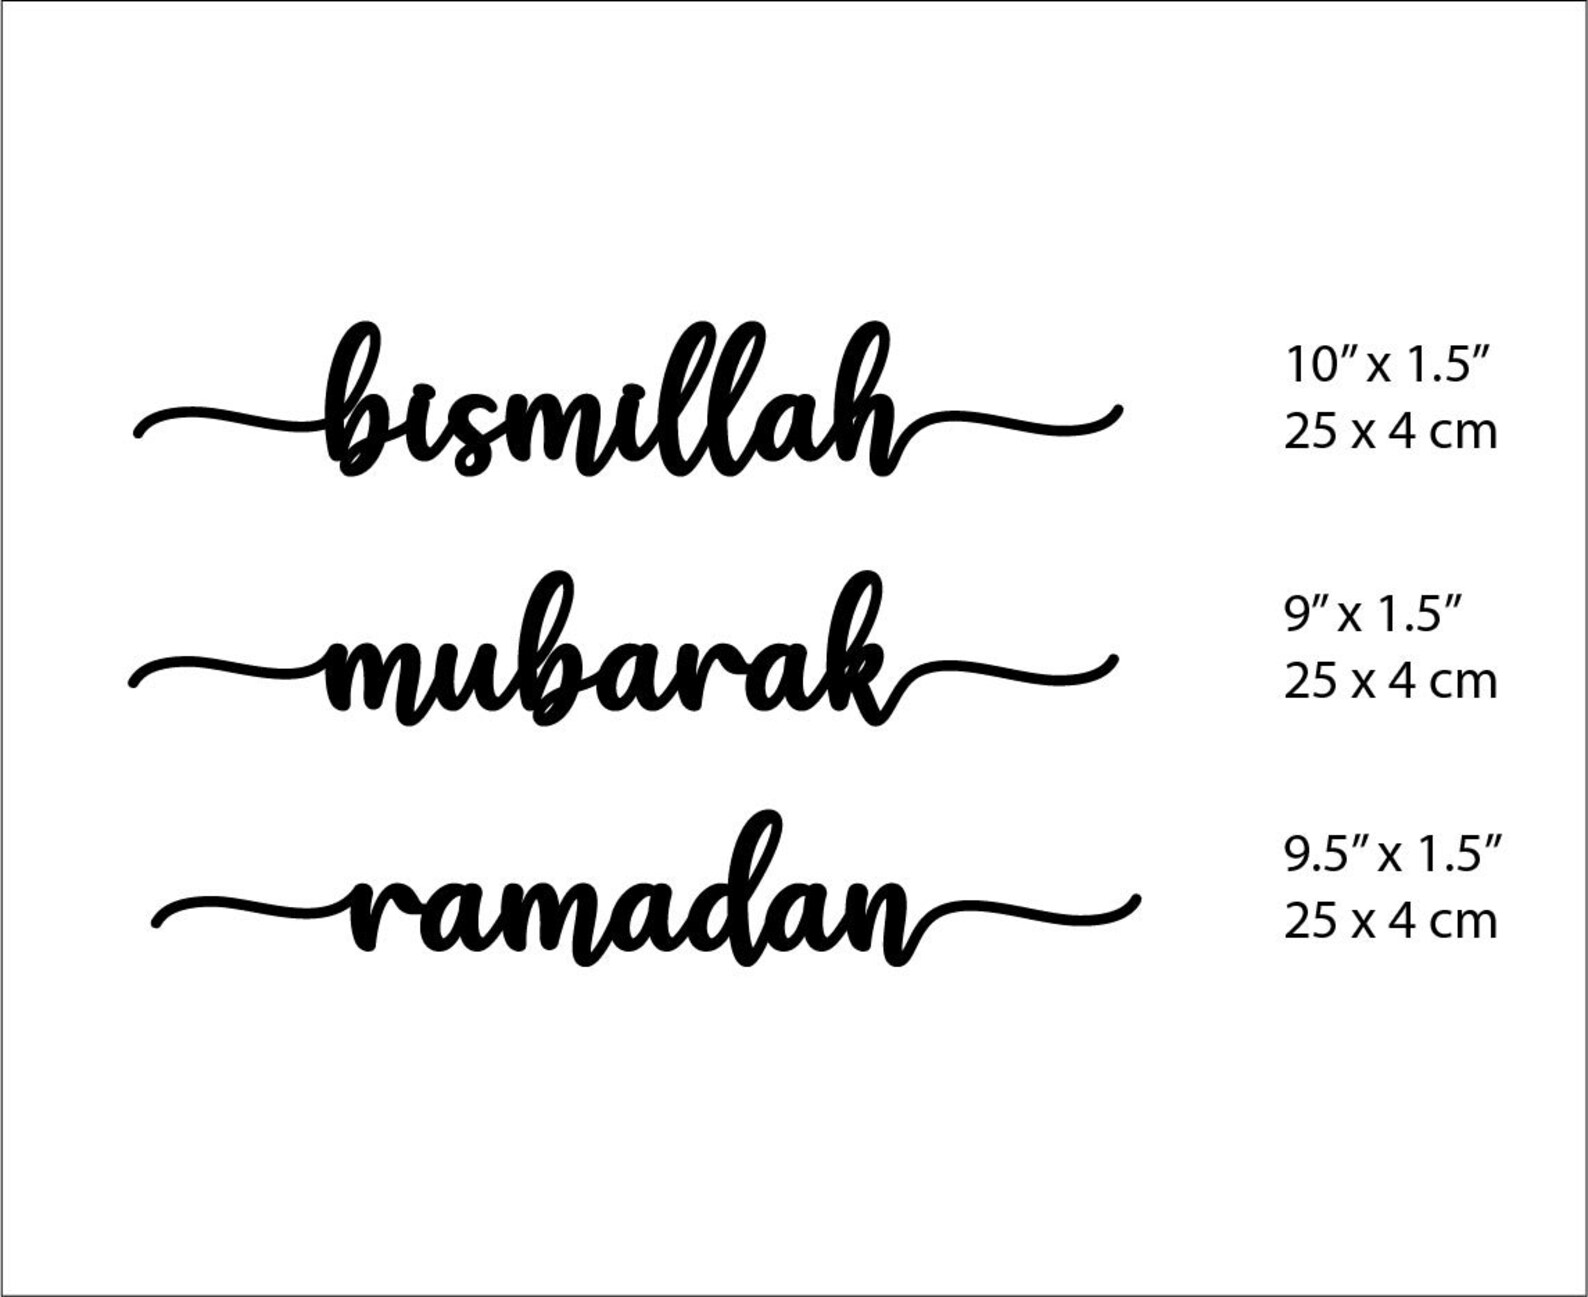 bismillah
10” x 1.5”
25 x 4 cm
mubarak
9” x 1.5”
25 x 4 cm
ramadan
9.5” x 1.5”
25 x 4 cm